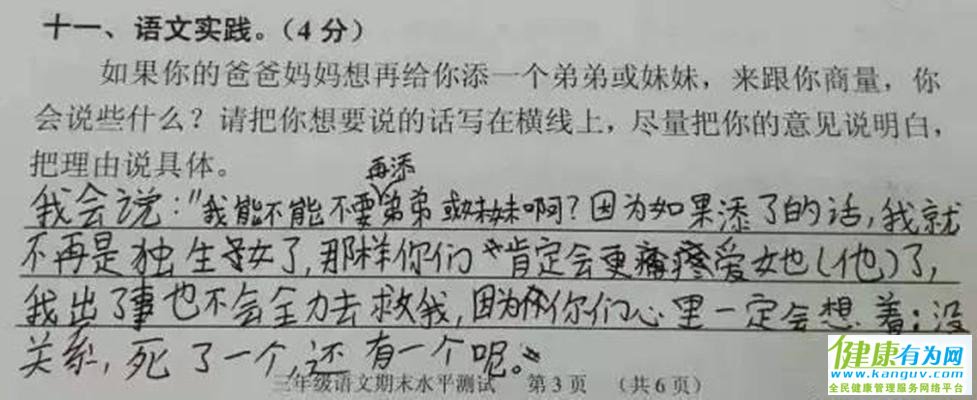 十一、语文实践。(4分)
如果你的爸爸妈妈想再给你添一个弟弟或妹妹，来跟你商量，你
会说些什么？请把你想要说的话写在横线上，尽量把你的意见说明白，
把理由说具体。
再添
我会说："我能不能不要弟弟或妹妹啊？因为如果添了的话，我就
不再是独生子女了，那样你们肯定会更疼爱她(他)了，
我出了事也不会全力去救我，因为你们心里一定会想着：没
关系，死了一个，还有一个呢。"
三年级语文期末水平测试 第3页 (共6页)
健康有为网
www.kanguv.com
全民健康管理服务网络平台